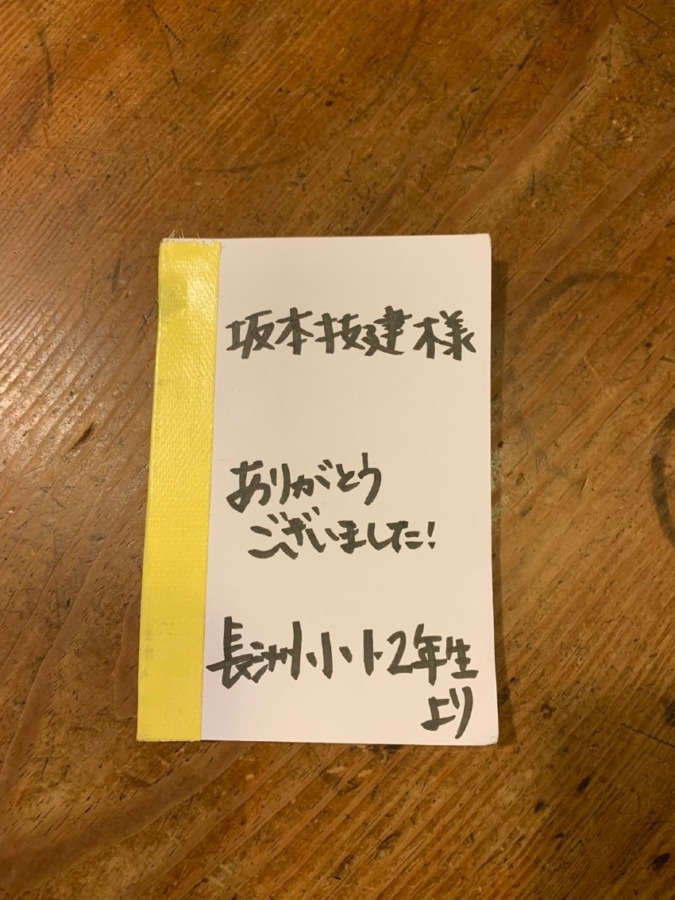 坂本技建様
ありがとう
ございました!
長洲小小2年生
より